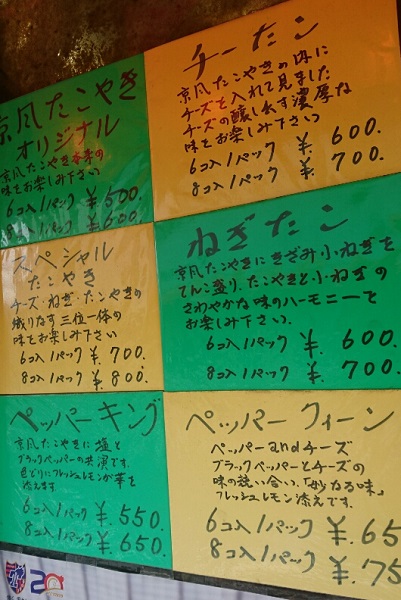 京風たこやき
オリジナル
京風たこやき本来の
味をお楽しみ下さい
6コ入1パック ¥.500.
8コ入1パック ¥.600.
チーたこ
京風たこやきの内に
チーズを入れて見ました
チーズの醸し出す濃厚な
味をお楽しみ下さい
6コ入1パック ¥. 600.
8コ入1パック ¥. 700.
スペシャル
たこやき
チーズ・ねぎ・たこやきの
織りなす三位一体の
味をお楽しみ下さい
6コ入1パック ¥. 700.
8コ入1パック ¥. 800.
ねぎたこ
京風たこやきにきざみ小ねぎを
てんこ盛り、たこやきと小ねぎの
さわやかな味のハーモニーを
お楽しみ下さい.
6コ入1パック ¥. 600.
8コ入1パック ¥. 700.
ペッパーキング
京風たこやきに塩と
ブラックペッパーの共演です.
色どりにフレッシュレモンが華を
添えます
6コ入1パック ¥. 550.
8コ入1パック ¥. 650.
ペッパークィーン
ペッパーandチーズ
ブラックペッパーとチーズの
味の競い合い、「妙なる味」
フレッシュレモン添えです.
6コ入1パック ¥. 65
8コ入1パック ¥. 75
20